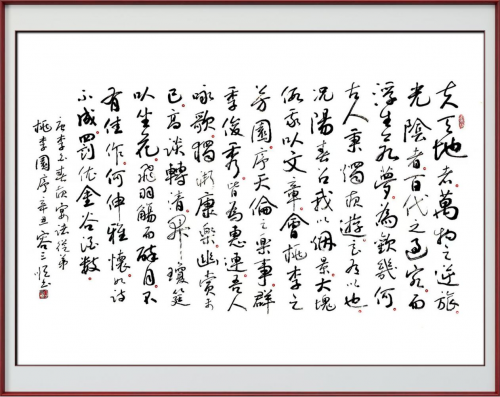 夫天地者萬物之逆旅
光陰者百代之過客而
浮生若夢為歡幾何
古人秉燭夜遊良有以也
況陽春召我以烟景大塊
假我以文章會桃李之
芳園序天倫之樂事群
季俊秀皆為惠連吾人
詠歌獨慚康樂幽賞未
已高談轉清開瓊筵
以坐花飛羽觴而醉月不
有佳作何伸雅懷如詩
不成罰依金谷酒數
唐李白春夜宴從弟
桃李園序辛丑